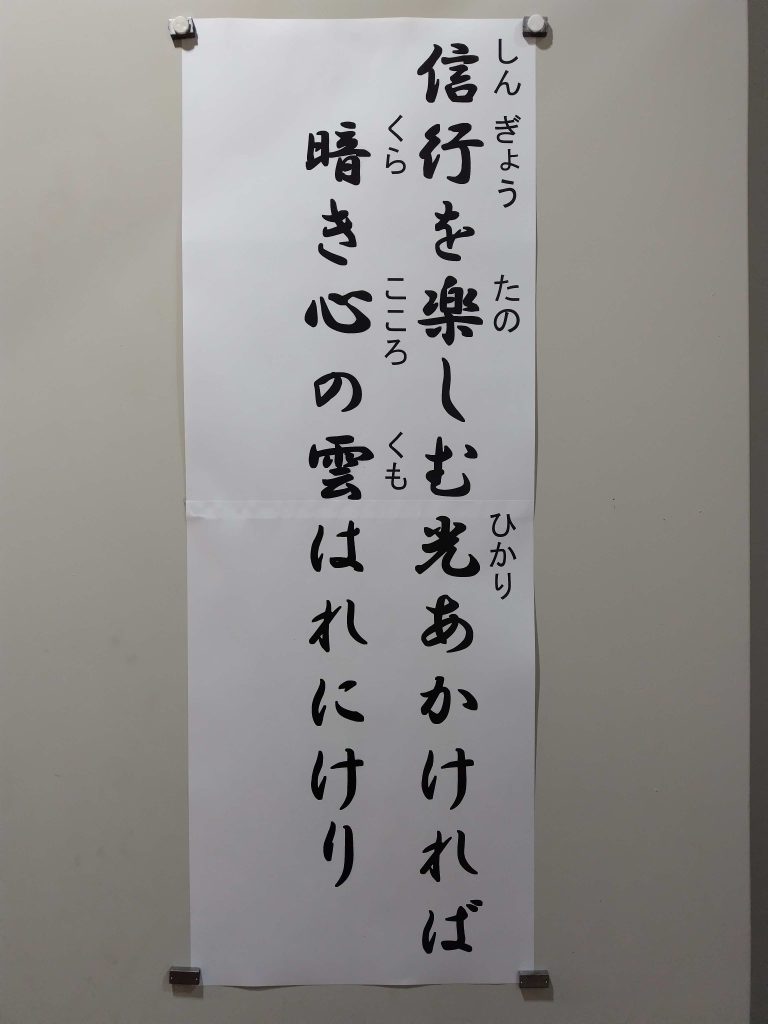 しんぎょう たの ひかり
信行を楽しむ光あかければ
くら こころ くも
暗き心の雲はれにけり